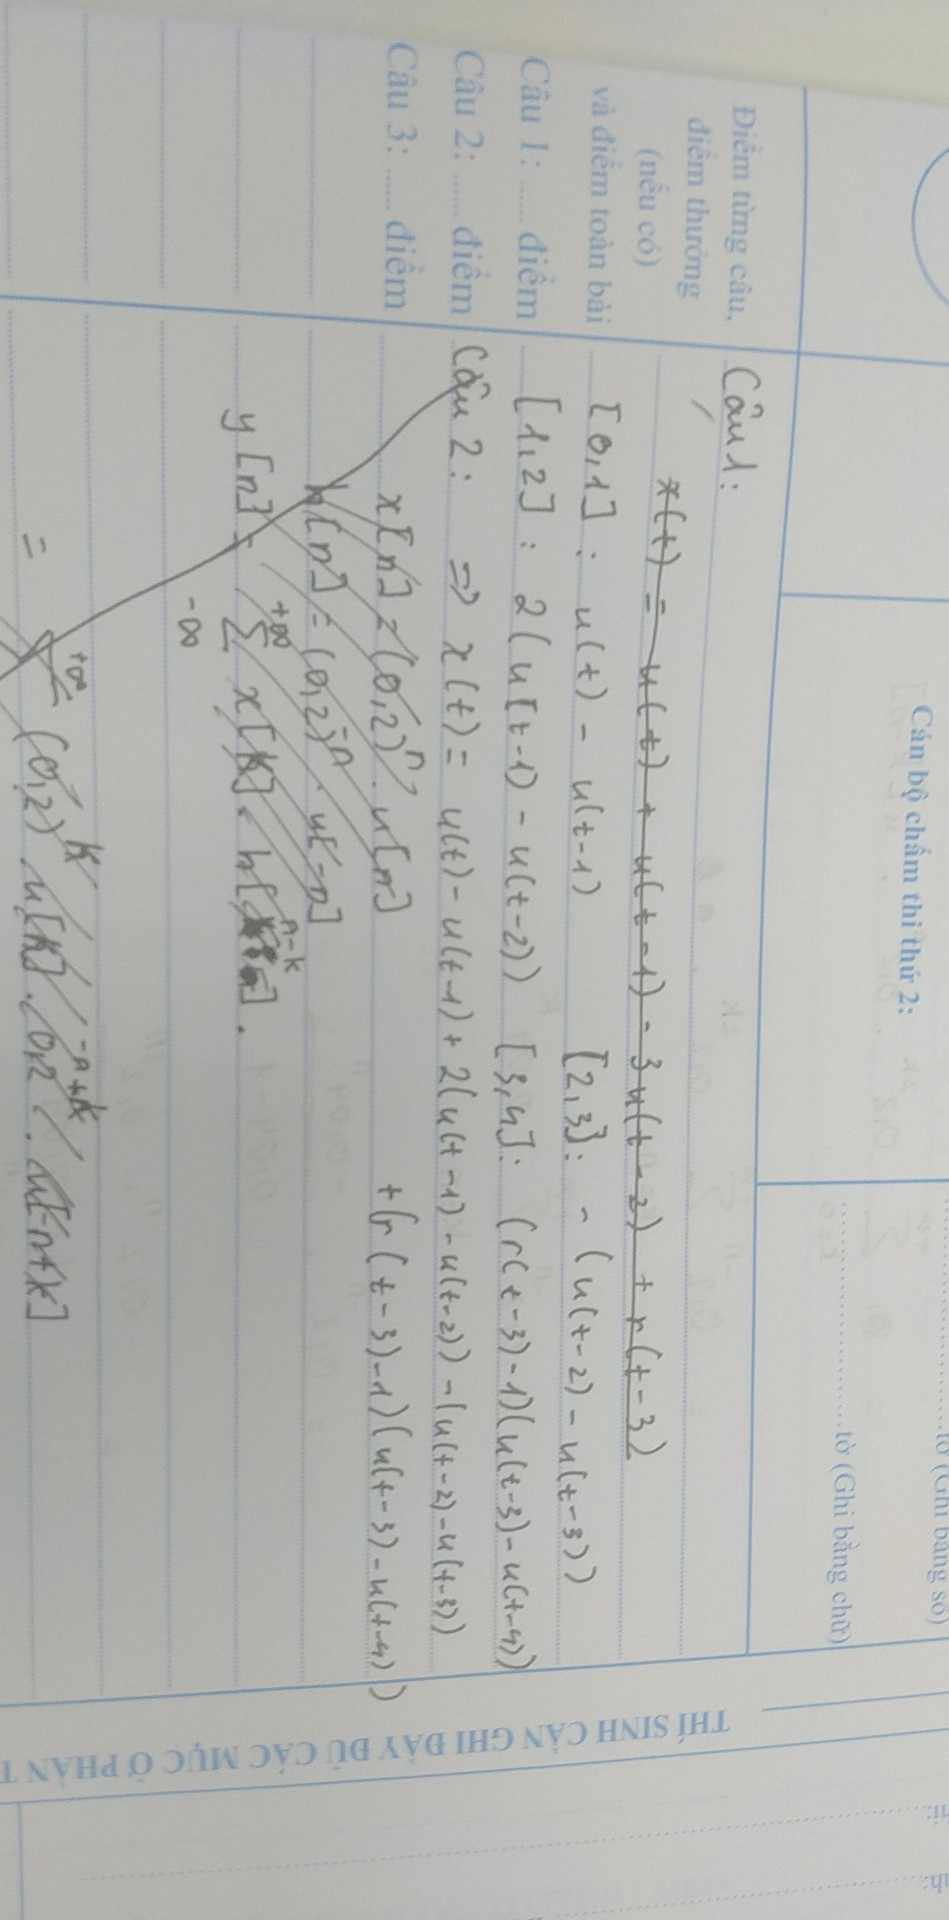 tờ (Ghi bằng số)
Cán bộ chấm thi thứ 2:
tờ (Ghi bằng chữ)
Điểm từng câu,
điểm thưởng
(nếu có)
và điểm toàn bài
Câu 1: ..... điểm
Câu 2: ..... điểm
Câu 3: ..... điểm
Câu 1:
x(t) = u(t) + u(t-1) - 3u(t-2) + r(t-3)
[0,1] : u(t) - u(t-1) [2,3]: - (u(t-2) - u(t-3))
[1,2] : 2(u(t-1) - u(t-2)) [3,4]: (r(t-3)-1)(u(t-3)-u(t-4))
Câu 2: => x(t) = u(t) - u(t-1) + 2(u(t-1) - u(t-2)) - (u(t-2)-u(t-3))
+(r(t-3)-1)(u(t-3)-u(t-4))
x[n] = (0,2)^n . u[n]
h[n] = (0,2)^-n . u[-n]
y[n] = +∞ Σ -∞ x[k] . h[n-k] .
= +∞ Σ (0,2)^k u[k] . 0,2^-n+k . u[-n+k]
THÍ SINH CẦN GHI ĐẦY ĐỦ CÁC MỤC Ở PHẦN